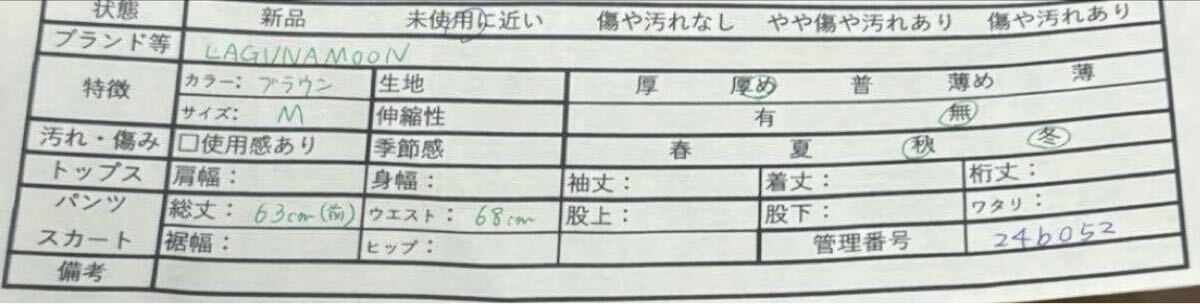 状態 新品 未使用に近い 傷や汚れなし やや傷や汚れあり 傷や汚れあり
ブランド等 LAGUNAMOON
特徴 カラー: ブラウン 生地 厚 厚め 普 薄め 薄
サイズ: M 伸縮性 有 無
汚れ・傷み □使用感あり 季節感 春 夏 秋 冬
トップス 肩幅: 身幅: 袖丈: 着丈: 裄丈:
パンツ 総丈: 63cm(前) ウエスト: 68cm 股上: 股下: ワタリ:
スカート 裾幅: ヒップ: 管理番号 246052
備考